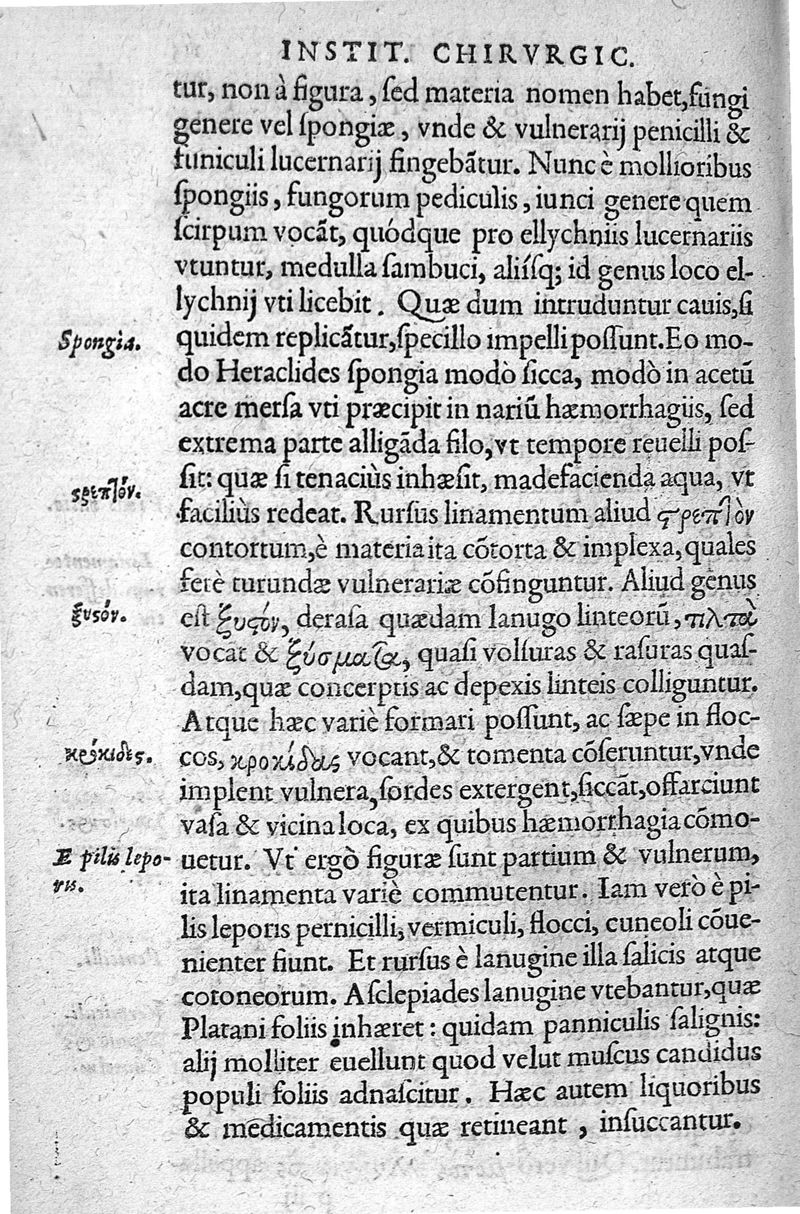 INSTIT. CHIRVRGIC.
tur, non à figura, ſed materia nomen habet, fungi
genere vel ſpongiæ, vnde & vulnerarij penicilli &
funiculi lucernarij fingebãtur. Nunc è mollioribus
ſpongiis, fungorum pediculis, iunci genere quem
ſcirpum vocãt, quódque pro ellychniis lucernariis
vtuntur, medulla ſambuci, aliíſq; id genus loco el-
lychnij vti licebit. Quæ dum intruduntur cauis, ſi
Spongia.
quidem replicãtur, ſpecillo impelli poſſunt. Eo mo-
do Heraclides ſpongia modò ſicca, modò in acetũ
acre merſa vti præcipit in nariũ hæmorrhagiis, ſed
extrema parte alligãda filo, vt tempore reuelli poſ-
ςρεπτόν.
ſit: quæ ſi tenaciùs inhæſit, madefacienda aqua, vt
faciliùs redeat. Rurſus linamentum aliud ςρεπτὸν
contortum, è materia ita cõtorta & implexa, quales
ferè turundæ vulnerariæ cõfinguntur. Aliud genus
ξυςόν.
eſt ξυςόν, deraſa quædam lanugo linteorũ, πιλτὰ
vocãt & ξύσματα, quaſi volſuras & raſuras quaſ-
dam, quæ concerptis ac depexis linteis colliguntur.
Atque hæc variè formari poſſunt, ac ſæpe in floc-
κροκίδες.
cos, κροκίδας vocant, & tomenta cõſeruntur, vnde
implent vulnera, ſordes extergent, ſiccãt, offarciunt
vaſa & vicina loca, ex quibus hæmorrhagia cõmo-
E pilis lepo-
ris.
uetur. Vt ergò figuræ ſunt partium & vulnerum,
ita linamenta variè commutentur. Iam verò è pi-
lis leporis pernicilli, vermiculi, flocci, cuneoli cõue-
nienter fiunt. Et rurſus è lanugine illa ſalicis atque
cotoneorum. Aſclepiades lanugine vtebantur, quæ
Platani foliis inhæret: quidam panniculis ſalignis:
alij molliter euellunt quod velut muſcus candidus
populi foliis adnaſcitur. Hæc autem liquoribus
& medicamentis quæ retineant, inſuccantur.